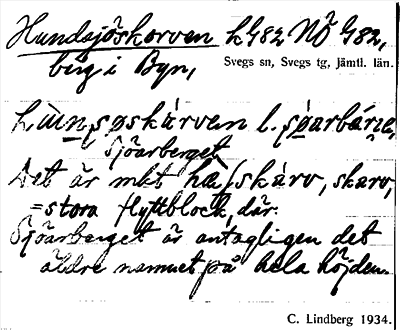 Hundsjöskorven k G82 NÖ G82,
berg i Byn,
Svegs sn, Svegs tg, Jämtl. län.
l.
Sjöarberget
Det är mkt skárv, skarv,
=stora flyttblock, där.
Sjöarberget är antagligen det
äldre namnet på hela höjden.
C. Lindberg 1934.